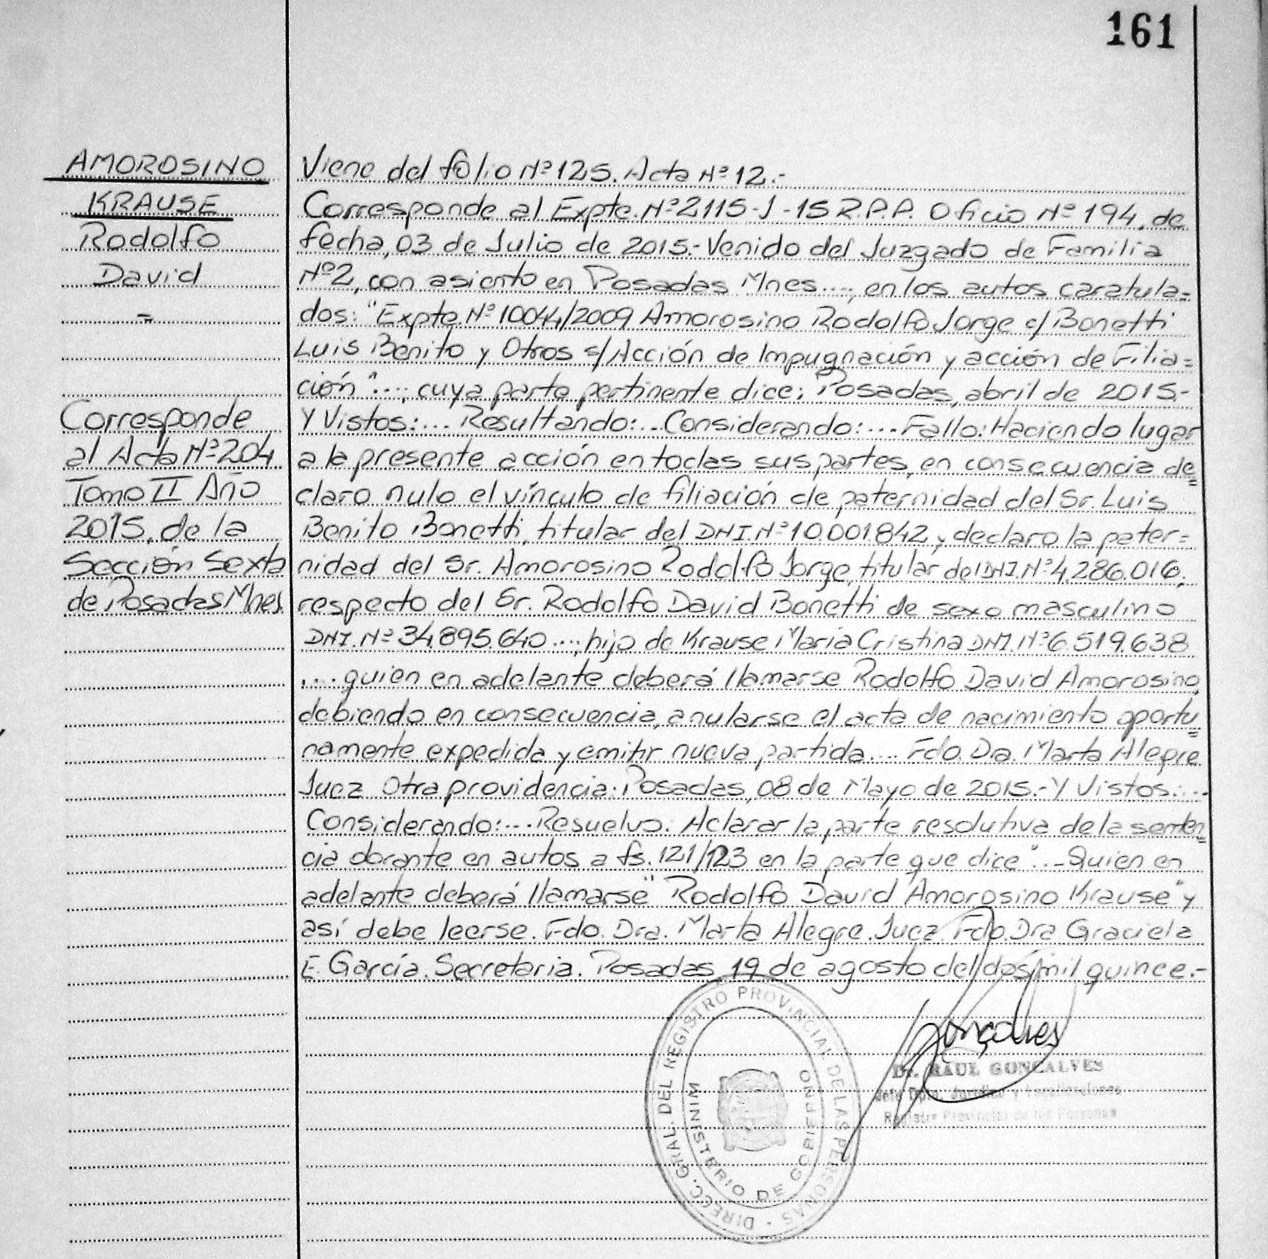 161
AMOROSINO
KRAUSE
Rodolfo
David
=
Corresponde
al Acta Nº 204
Tomo II Año
2015, de la
Sección Sexta
de Posadas Mnes.
Viene del folio Nº 125. Acta Nº 12.-
Corresponde al Expte. Nº 2115-J-15 R.P.P. Oficio Nº 194, de
fecha, 03 de Julio de 2015.- Venido del Juzgado de Familia
Nº 2, con asiento en Posadas Mnes..., en los autos caratula=
dos: "Expte. Nº 10044/2009 Amorosino Rodolfo Jorge c/ Bonetti
Luis Benito y Otros s/ Acción de Impugnación y acción de Filia=
ción"..., cuya parte pertinente dice: Posadas, abril de 2015.-
Y Vistos:... Resultando:... Considerando:... Fallo: Haciendo lugar
a la presente acción en todas sus partes, en consecuencia de=
claro nulo el vínculo de filiación de paternidad del Sr. Luis
Benito Bonetti, titular del DNI. Nº 10.001.842, y declaro la pater=
nidad del Sr. Amorosino Rodolfo Jorge, titular del DNI. Nº 4.286.016,
respecto del Sr. Rodolfo David Bonetti de sexo masculino
DNI. Nº 34.895.640 ..., hijo de Krause María Cristina DNI. Nº 6.519.638
,... quien en adelante deberá llamarse Rodolfo David Amorosino,
debiendo en consecuencia, anularse el acta de nacimiento oportu=
namente expedida y emitir nueva partida.... Fdo. Dra. Marta Alegre
Juez Otra providencia: Posadas, 08 de Mayo de 2015.- Y Vistos:...
Considerando:... Resuelvo: Aclarar la parte resolutiva de la senten=
cia obrante en autos a fs. 121/123 en la parte que dice "... Quien en
adelante deberá llamarse" "Rodolfo David Amorosino Krause" y
así debe leerse. Fdo. Dra. Marta Alegre. Juez. Fdo. Dra Graciela
E. García. Secretaria. Posadas, 19 de agosto del dos mil quince.-
Gonçalves
Dr. RAUL GONCALVES
Jefe Dpto. Jurídico y Legalizaciones
Registro Provincial de las Personas
DIRECC. GRAL. DEL REGISTRO PROVINCIAL DE LAS PERSONAS -
MINISTERIO DE GOBIERNO